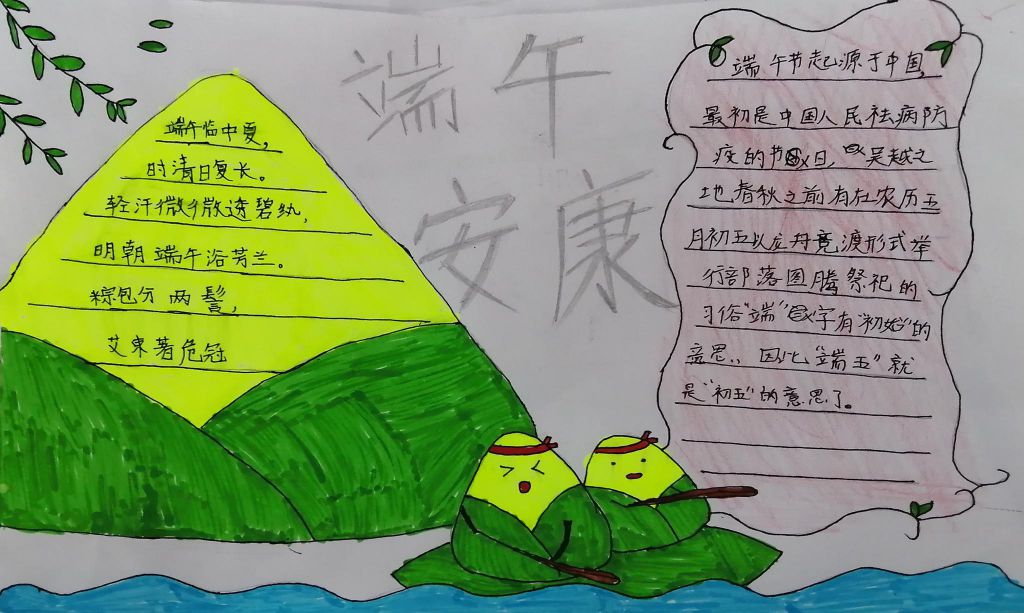 端午
安康
端午临中夏,
时清日复长。
轻汗微微透碧纨,
明朝端午浴芳兰。
粽包分两髻,
艾束著危冠
端午节起源于中国,
最初是中国人民祛病防
疫的节日,吴越之
地春秋之前有在农历五
月初五以龙舟竞渡形式举
行部落图腾祭祀的
习俗"端"字有"初始"的
意思,因此"端五"就
是"初五"的意思了。